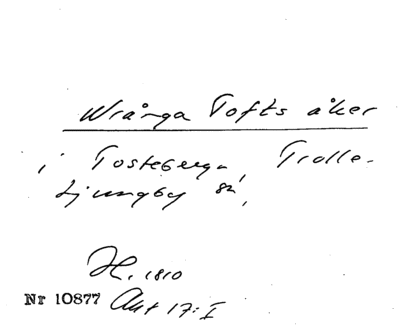 Wrånga Tofts åker
i Tosteberga, Trolle-
Ljungby sn,
H. 1810
Nr 10877 Akt 17:I